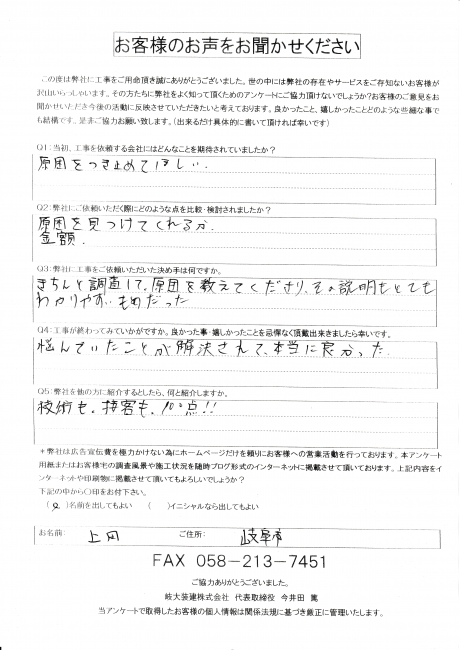 お客様のお声をお聞かせください
この度は弊社に工事をご用命頂き誠にありがとうございました。世の中には弊社の存在やサービスをご存知ないお客様が
沢山いらっしゃいます。その方たちに弊社をよく知って頂くためのアンケートにご協力頂けないでしょうか?お客様のご意見をお
聞かせいただき今後の活動に反映させていただきたいと考えております。良かったこと、嬉しかったことどのような些細な事で
も結構です。是非ご協力お願い致します。(出来るだけ具体的に書いて頂ければ幸いです)
Q1:当初、工事を依頼する会社にはどんなことを期待されていましたか?
原因をつき止めてほしい.
Q2:弊社にご依頼いただく際にどのような点を比較・検討されましたか?
原因を見つけてくれるか.
金額.
Q3:弊社に工事をご依頼いただいた決め手は何ですか。
きちんと調査して、原因を教えてくださり、その説明もとても
わかりやすいものだった
Q4:工事が終わってみていかがですか。良かった事・嬉しかったことを忌憚なく頂戴出来ましたら幸いです。
悩んでいたことが解決されて、本当に良かった
Q5:弊社を他の方に紹介するとしたら、何と紹介しますか。
技術も、接客も、100点!!
*弊社は広告宣伝費を極力かけない為にホームページだけを頼りにお客様への営業活動を行っております。本アンケート
用紙またはお客様宅の調査風景や施工状況を随時ブログ形式のインターネットに掲載させて頂いております。上記内容をイ
ンターネットや印刷物に掲載させて頂いてもよろしいでしょうか?
下記の中から〇印をお付下さい。
(〇)名前を出してもよい ( )イニシャルなら出してもよい
お名前: 上田 ご住所: 岐阜市
FAX 058-213-7451
ご協力ありがとうございました。
岐大装建株式会社 代表取締役 今井田 篤
当アンケートで取得したお客様の個人情報は関係法規に基づき厳正に管理いたします。